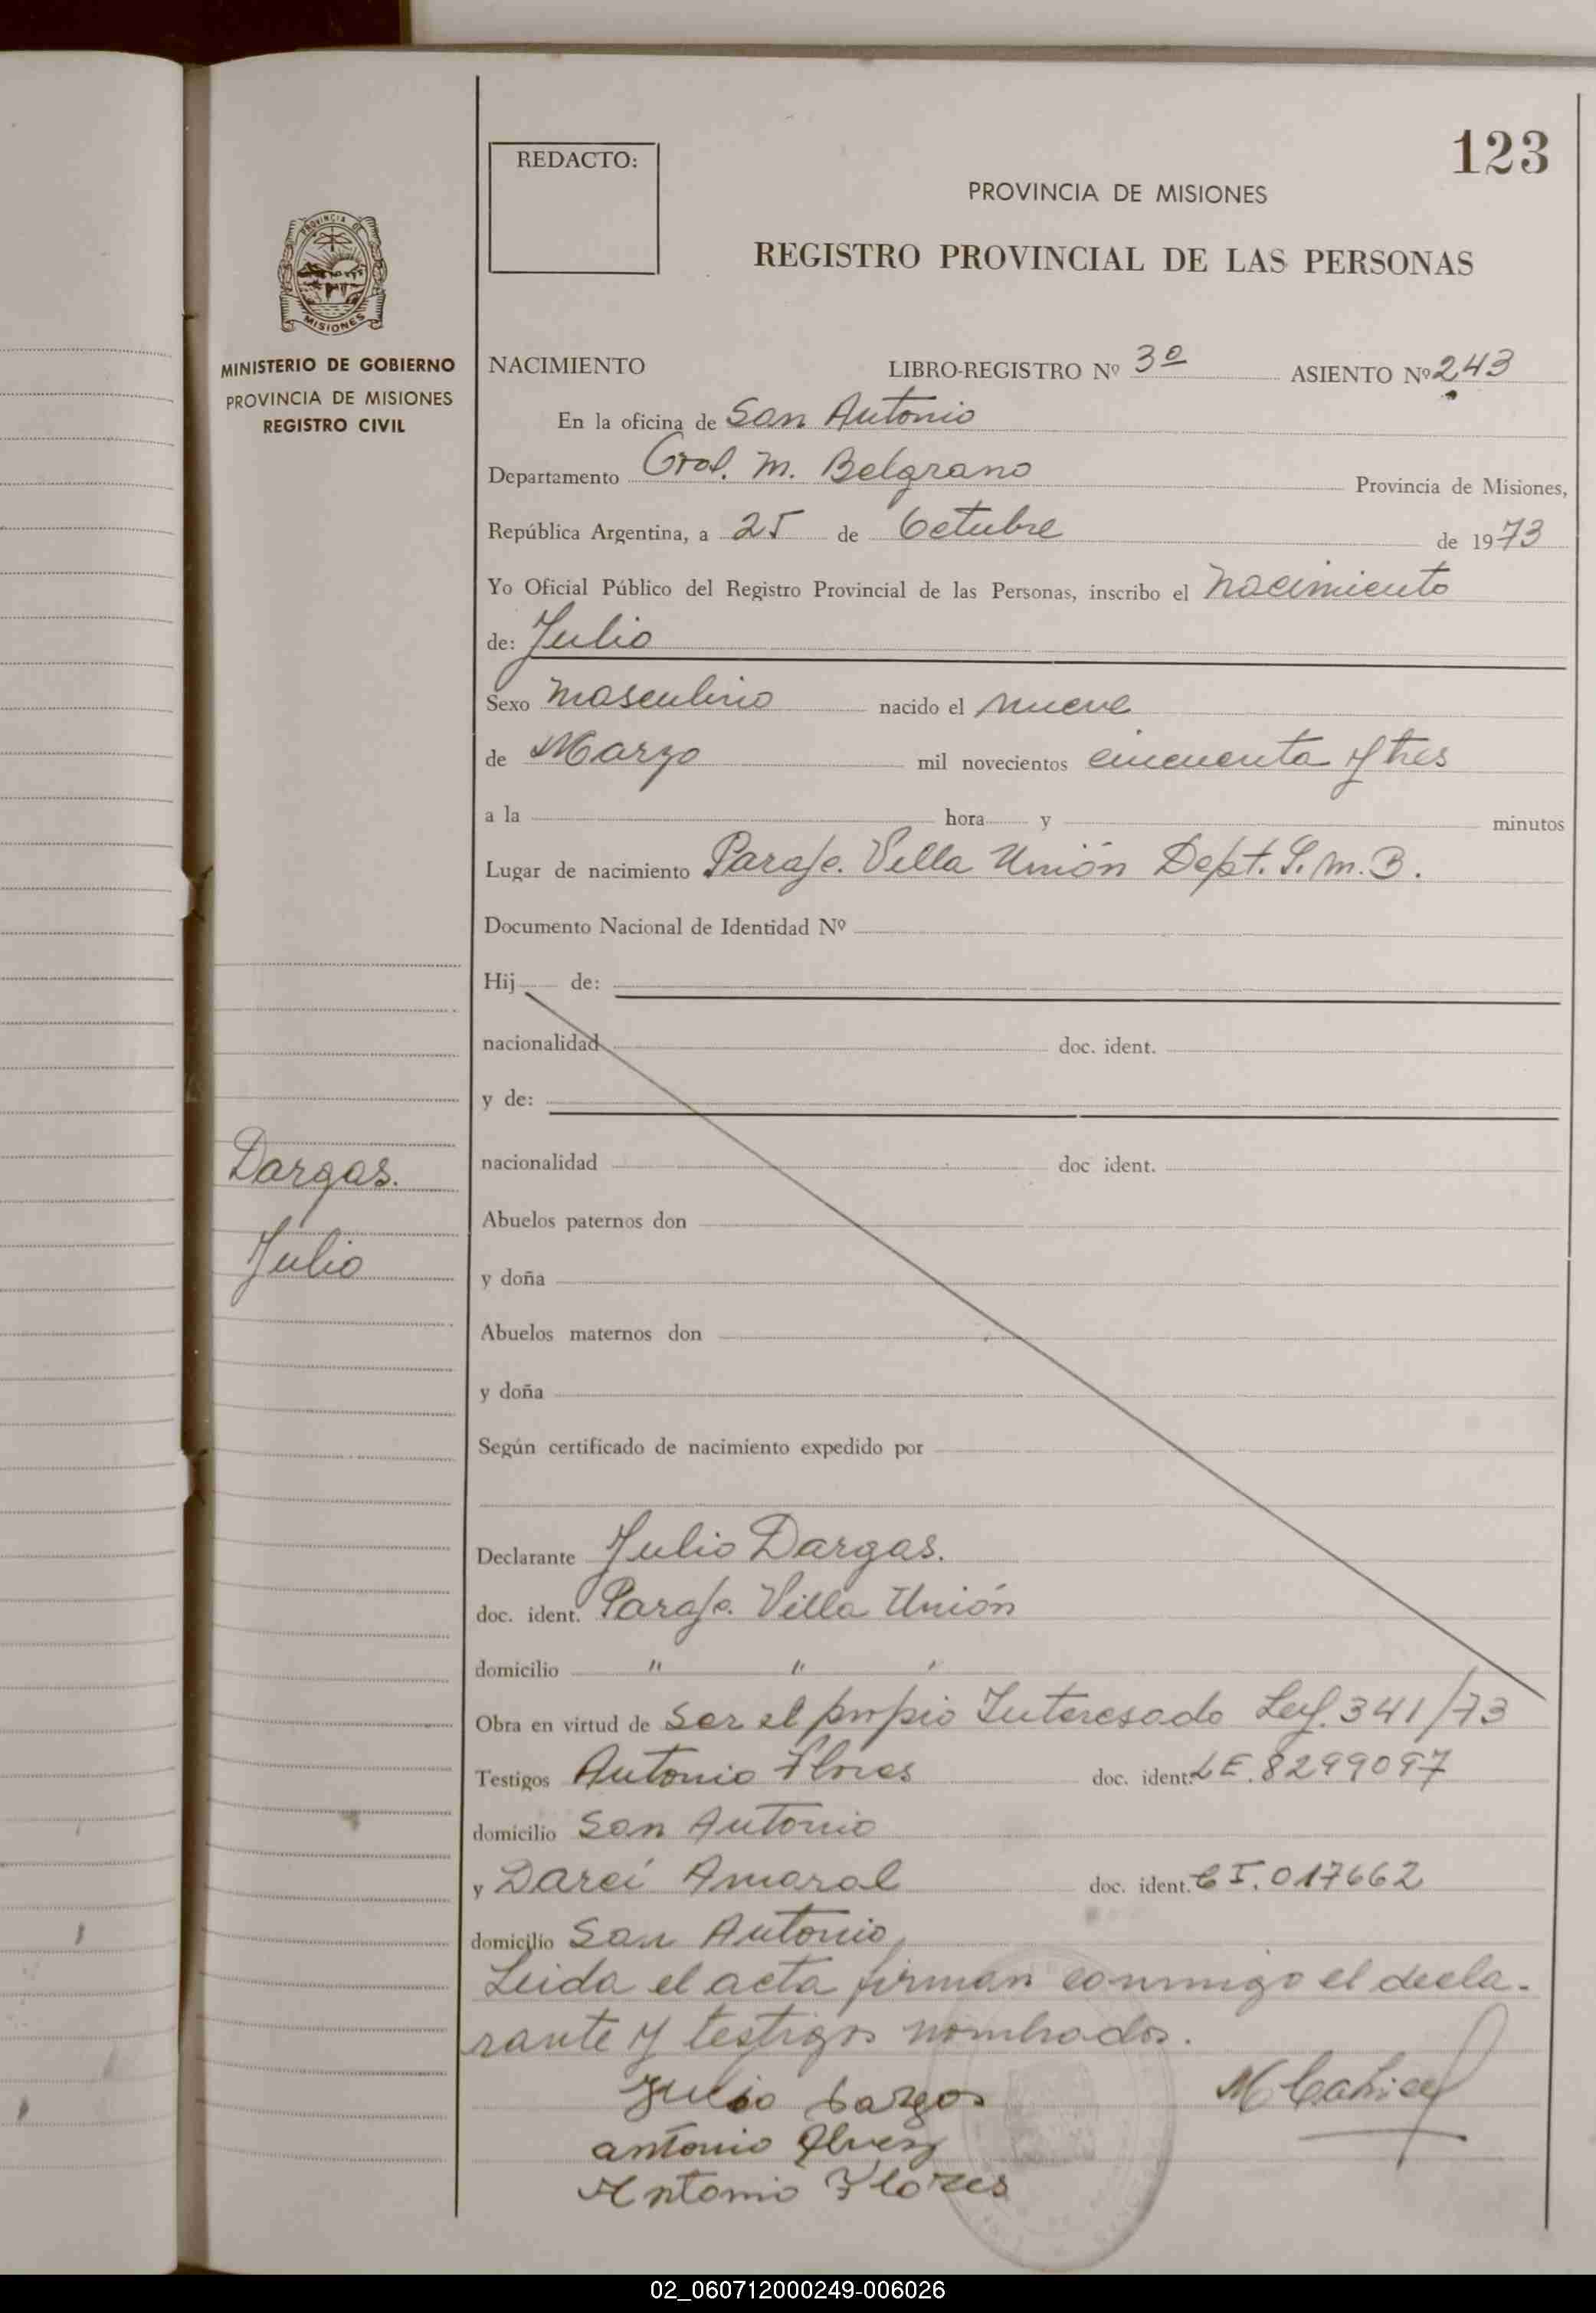 123
REDACTO:
PROVINCIA DE MISIONES
REGISTRO PROVINCIAL DE LAS PERSONAS
PROVINCIA DE
MISIONES
MINISTERIO DE GOBIERNO
PROVINCIA DE MISIONES
REGISTRO CIVIL
NACIMIENTO LIBRO-REGISTRO Nº 3º ASIENTO Nº 243
En la oficina de San Antonio
Departamento Gral. M. Belgrano Provincia de Misiones,
República Argentina, a 25 de Octubre de 1973
Yo Oficial Público del Registro Provincial de las Personas, inscribo el nacimiento
de: Julio
Sexo masculino nacido el nueve
de Marzo mil novecientos cincuenta y tres
a la hora y minutos
Lugar de nacimiento Paraje. Villa Unión Dept. G. M. B.
Documento Nacional de Identidad Nº
Hij de:
nacionalidad doc. ident.
y de:
nacionalidad doc ident.
Dargas.
Julio
Abuelos paternos don
y doña
Abuelos maternos don
y doña
Según certificado de nacimiento expedido por
Declarante Julio Dargas.
doc. ident. Paraje. Villa Unión
domicilio " " "
Obra en virtud de ser el propio Interesado Ley. 341/73
Testigos Antonio Flores doc. ident. LE. 8299097
domicilio San Antonio
y Darci Amaral doc. ident. C I. 017662
domicilio San Antonio,
Leida el acta firman conmigo el decla-
rante y testigos nombrados.
Julio Dargas
antonio
Antonio Flores
02_060712000249-006026